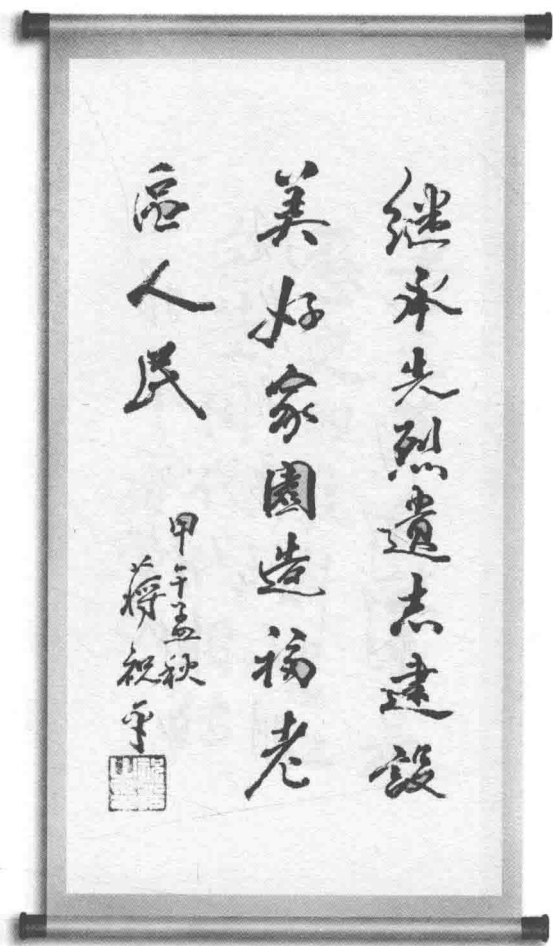 继承先烈遗志建设
美好家園造福老
區人民
甲午孟秋
蒋祝平